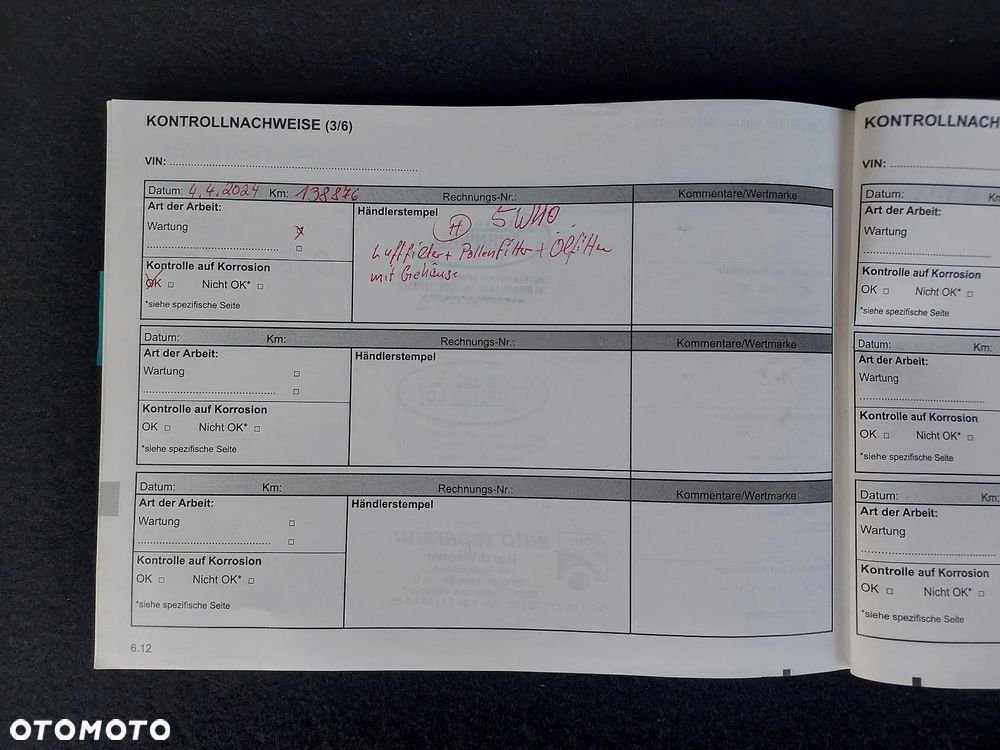 KONTROLLNACHWEISE (3/6)
VIN:
Datum: 4.4.2024 Km: 138876 Rechnungs-Nr.: Kommentare/Wertmarke
Art der Arbeit:
Wartung
Händlerstempel
H 5W40
Luftfilter + Pollenfilter + Ölfilter
mit Gehäuse
Kontrolle auf Korrosion
OK □ Nicht OK* □
*siehe spezifische Seite
Datum: Km: Rechnungs-Nr.: Kommentare/Wertmarke
Art der Arbeit:
Wartung □
□
Händlerstempel
Kontrolle auf Korrosion
OK □ Nicht OK* □
*siehe spezifische Seite
Datum: Km: Rechnungs-Nr.: Kommentare/Wertmarke
Art der Arbeit:
Wartung □
□
Händlerstempel
Kontrolle auf Korrosion
OK □ Nicht OK* □
*siehe spezifische Seite
6.12
KONTROLLNACH
VIN:
Datum: Km
Art der Arbeit:
Wartung
Kontrolle auf Korrosion
OK □ Nicht OK* □
*siehe spezifische Seite
Datum: Km:
Art der Arbeit:
Wartung
Kontrolle auf Korrosion
OK □ Nicht OK* □
*siehe spezifische Seite
Datum: Km:
Art der Arbeit:
Wartung
Kontrolle auf Korrosion
OK □ Nicht OK* □
*siehe spezifische Seite
OTOMOTO